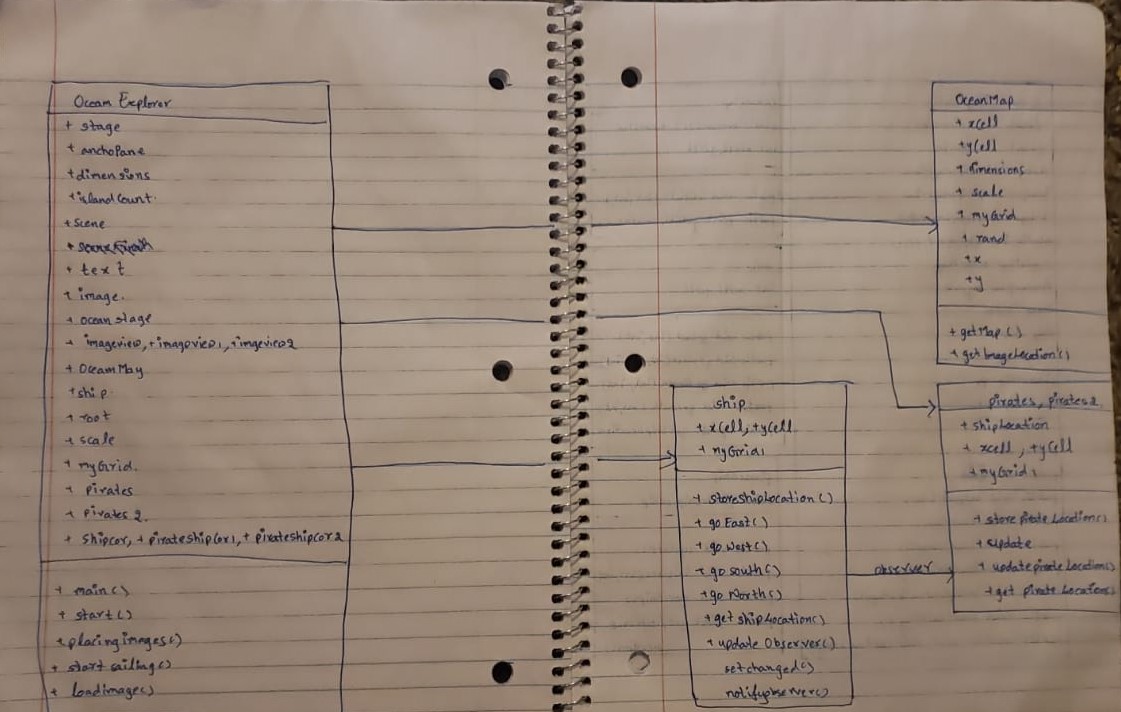 Ocean Explorer
+ stage
+ anchoPane
+dimensions
+islandCount.
+ Scene
+
+ text
+ image.
+ ocean stage
+ imageview, +imageview1, +imgeview2
+ OceanMay
+ship
+ root
+ scale
+ myGrid.
+ pirates
+ Pirates 2.
+ Shipcor, + pirateshipcor1, + pirateshipcor2
+ main()
+ start()
+placingimages()
+ start sailing()
+ loadimage()
OceanMap
+ xcell
+yCell
+ dimensions
+ scale
+ myGrid
+ rand
+x
+y
+ getMap ()
+ getImageLocation()
ship
+ xCell, +yCell
+ myGrid1
+ storeshipLocation()
+ go East()
+ go West()
+ go south()
+go North()
+get shipLocation()
+ update Observer()
setchanged()
notifyobserver()
observer
pirates, pirates2
+ shipLocation
+ xcell, +yCell
+myGrid1
+ store pirate Location()
+ update
+ updatepirateLocation()
+get pirate Location()